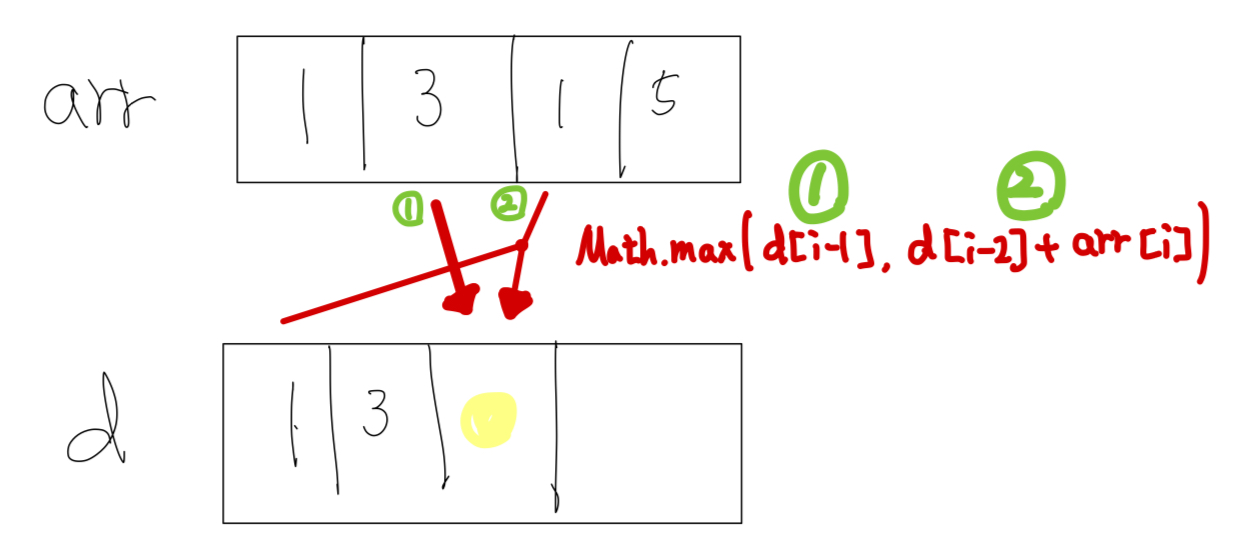 arr 1 3 1 5
① ② ① ②
Math.max(d[i-1], d[i-2]+arr[i])
d 1 3